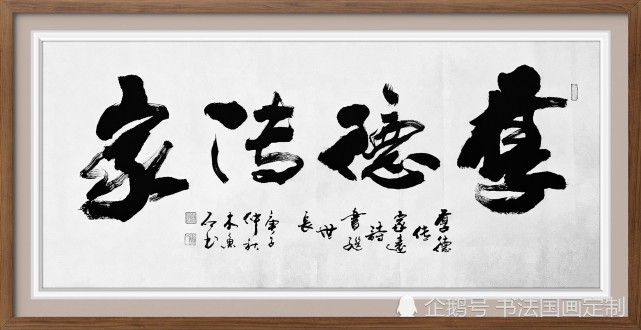 厚德传家
厚德
传
家远
诗
書继
世
長
庚子
仲秋
木鱼
企鹅号 书法国画定制